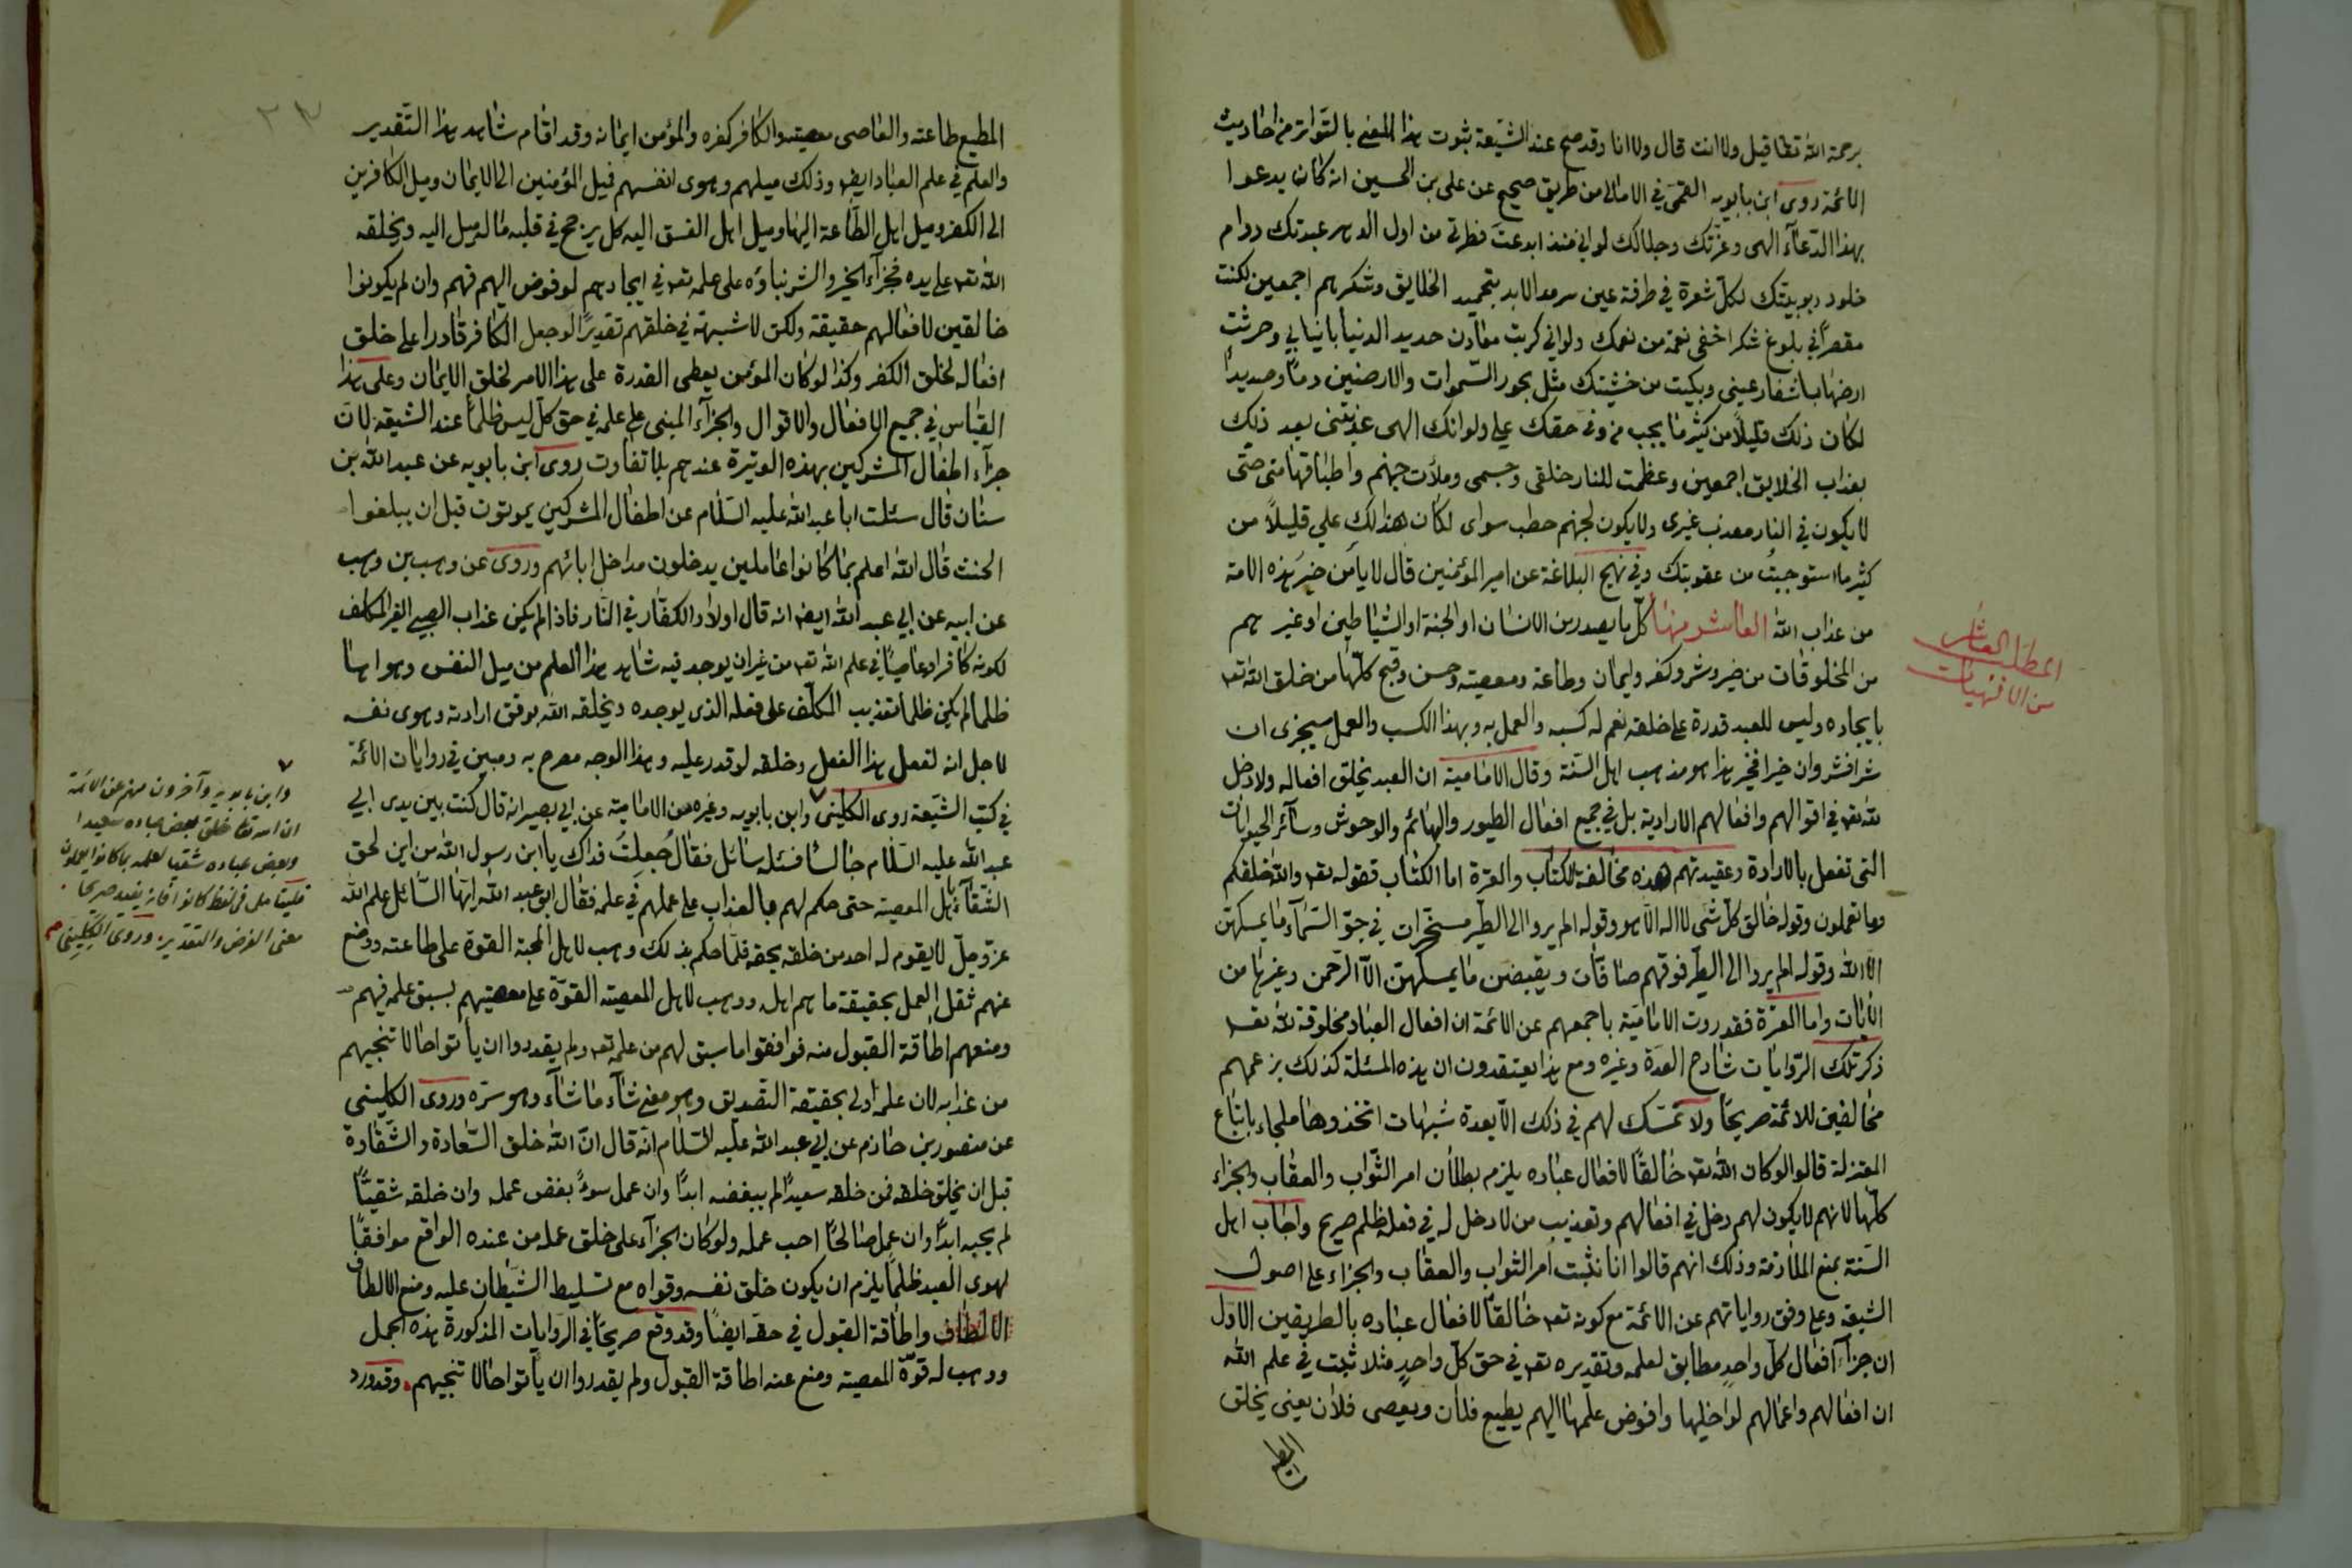 برحمة الله تعا قيل ولا انت قال ولا انا وقد صح عند الشيعة ثبوت هذا المعنى بالتواتر من احاديث
الائمة روى ابن بابويه القمى في الامالى من طريق صحيح عن على بن الحسين انه كان يدعوا
بهذا الدعآء الهى وعزتك وجلالك لو اني منذ ابدعت فطرتى من اول الدهر عبدتك دوام
خلود ربوبيتك لكل شعرة في طرفة عين سرمد الابد بتحميد الخلايق وشكرهم اجمعين لكنت
مقصرًا في بلوغ شكر اخفى نعمة من نعمك ولو اني كربت معادن حديد الدنيا بانيابي وحرثت
ارضها باشفار عينى وبكيت من خشيتك مثل بحور السموات والارضين دمًا وصديدًا
لكان ذلك قليلًا من كثير ما يجب من وفى حقك علي ولو انك الهى عذبتنى بعد ذلك
بعذاب الخلايق اجمعين وعظمت للنار خلقى وجسمى وملأت جهنم واطباقها منى حتى
لا يكون في النار معذب غيرى ولا يكون لجهنم حطب سواى لكان هذا لك علي قليلًا من
كثير ما استوجبتُ من عقوبتك وفي نهج البلاغة عن امير المؤمنين قال لا يأمن خير هذه الامة
من عذاب الله العاشر منها كل ما يصدر من الانسان او الجنة او الشياطين او غيرهم
من المخلوقات من خير وشر وكفر وايمان وطاعة ومعصية وحسن وقبح كلها من خلق الله تعه
بايجاده وليس للعبد قدرة على خلقه نعم له كسبه والعمل به وبهذا الكسب والعمل سيجزى ان
شرا فشر وان خيرا فخير هذا هو مذهب اهل السنة وقال الامامية ان العبد يخلق افعاله ولا دخل
لله تعه في اقوالهم وافعالهم الارادية بل في جميع افعال الطيور والبهائم والوحوش وسآئر الحيوانات
التى تفعل بالارادة وعقيدتهم هذه مخالفة للكتاب والعترة اما الكتاب فقوله تعه والله خلقكم
وما تعملون وقوله خالق كل شى لا اله الا هو وقوله الم يروا الى الطير مسخرات في جو السمآء ما يمسكهن
الا الله وقوله اولم يروا الى الطير فوقهم صافات ويقبضن ما يمسكهن الا الرحمن وغيرها من
الآيات واما العترة فقد روت الامامية باجمعهم عن الائمة ان افعال العباد مخلوقة لله تعه
ذكر تلك الروايات شارح العدة وغيره ومع هذا يعتقدون ان هذه المسئلة كذلك بزعمهم
مخالفين للائمة صريحًا ولا تمسك لهم في ذلك الا بعدة شبهات اتخذوها ملجاء باتباع
المعتزلة قالوا لو كان الله تعه خالقًا لافعال عباده يلزم بطلان امر الثواب والعقاب والجزاء
كلها لانهم لا يكون لهم دخل في افعالهم وتعذيب من لا دخل له في فعله ظلم صريح واجاب اهل
السنة بمنع الملازمة وذلك انهم قالوا انا نثبت امر الثواب والعقاب والجزاء على اصول
الشيعة وعلى وفق رواياتهم عن الائمة مع كونه تعه خالقًا لافعال عباده بالطريقين الاول
ان جزآء افعال كل واحد مطابق لعلمه وتقديره تعه في حق كل واحدٍ مثلا ثبت في علم الله
ان افعالهم واعمالهم لو اخليها وافوض علمها اليهم يطيع فلان ويعصى فلان يعنى يخلق
المطيع
المطلب العاشر
من الالهيات
المطيع طاعته والعاصى معصيته والكافر كفره والمؤمن ايمانه وقد اقام شاهد هذا التقدير
والعلم في علم العباد ايضه وذلك ميلهم وهوى انفسهم فيل المؤمنين الى الايمان وميل الكافرين
الى الكفر وميل اهل الطاعة اليها وميل اهل الفسق اليه كل يرجح في قلبه ما له ميل اليه ويخلقه
الله تعه على يده فجزآء الخير والشر بناؤه على علمه تعه في ايجادهم لو فوض اليهم فهم وان لم يكونوا
خالقين لافعالهم حقيقة ولكن لا شبهة في خلقهم تقديرًا لو جعل الكافر قادرا على خلق
افعاله لخلق الكفر وكذا لو كان المؤمن يعطى القدرة على هذا الامر لخلق الايمان وعلى هذا
القياس في جميع الافعال والاقوال والجزآء المبنى على علمه في حق كل ليس ظلمًا عند الشيعة لان
جزآء اطفال المشركين بهذه الوتيرة عندهم بلا تفاوت روى ابن بابويه عن عبد الله بن
سنان قال سئلت ابا عبد الله عليه السلام عن اطفال المشركين يموتون قبل ان يبلغوا
الحنث قال الله اعلم بما كانوا عاملين يدخلون مداخل ابائهم وروى عن وهب بن وهب
عن ابيه عن ابي عبد الله ايضه انه قال اولاد الكفار في النار فاذا لم يكن عذاب الصبي الغير المكلف
لكونه كافرا وعاصيًا في علم الله تعه من غير ان يوجد فيه شاهد هذا العلم من ميل النفس وهواها
ظلما لم يكن ظلما تعذيب المكلف على فعله الذى يوجده ويخلقه الله بوفق ارادته وهوى نفسه
لاجل انه لفعل هذا الفعل وخلقه لو قدر عليه وهذا الوجه مصرح به ومبين في روايات الائمة
في كتب الشيعة روى الكلينى وابن بابويه وغيره من الامامية عن ابي بصير انه قال كنت بين يدى ابي
عبد الله عليه السلام جالسًا فسئله سائل فقال جُعِلتُ فداك يا ابن رسول الله من اين لحق
الشقآء باهل المعصية حتى حكم لهم بالعذاب على عملهم في علمه فقال ابو عبد الله ايها السائل علم الله
عز وجل لا يقوم له احد من خلقه بحقه فلما حكم بذلك وهب لاهل المحبة القوة على طاعته ووضع
عنهم ثقل العمل بحقيقة ما هم اهله ووهب لاهل المعصية القوة على معصيتهم لسبق علمه فيهم
ومنعهم اطاقة القبول منه فوافقوا ما سبق لهم من علمه تعه ولم يقدروا ان يأتوا حالا تنجيهم
من عذابه لان علمه اولى بحقيقة التصديق وهو معنى شآء ما شآء وهو سره وروى الكلينى
عن منصور بن حازم عن ابي عبد الله عليه السلام انه قال ان الله خلق السعادة والشقاوة
قبل ان يخلق خلقه فمن خلقه سعيدًا لم يبغضه ابدًا وان عمل سوءً بغض عمله وان خلقه شقيًا
لم يحبه ابدًا وان عمل صالحًا احب عمله ولو كان الجزآء على خلق عمله من عنده الواقع موافقًا
لهوى العبد ظلمًا يلزم ان يكون خلق نفسه وقواه مع تسليط الشيطان عليه ومنع الالطاف
الالطاف واطاقة القبول في حقه ايضًا وقد وقع صريحًا في الروايات المذكورة هذه الجمل
ووهب له قوة المعصية ومنع عنه اطاقة القبول ولم يقدروا ان يأتوا حالا تنجيهم وقد ورد
وابن بابويه وآخرون منهم عن الائمة
ان الله تعا خلق بعض عباده سعيدا
وبعض عباده شقيا لعلمه بما كانوا يعملون
فليتامل في لفظ كانوا فانه يفيد صريحا
معنى الفرض والتقدير وروى الكلينى صح